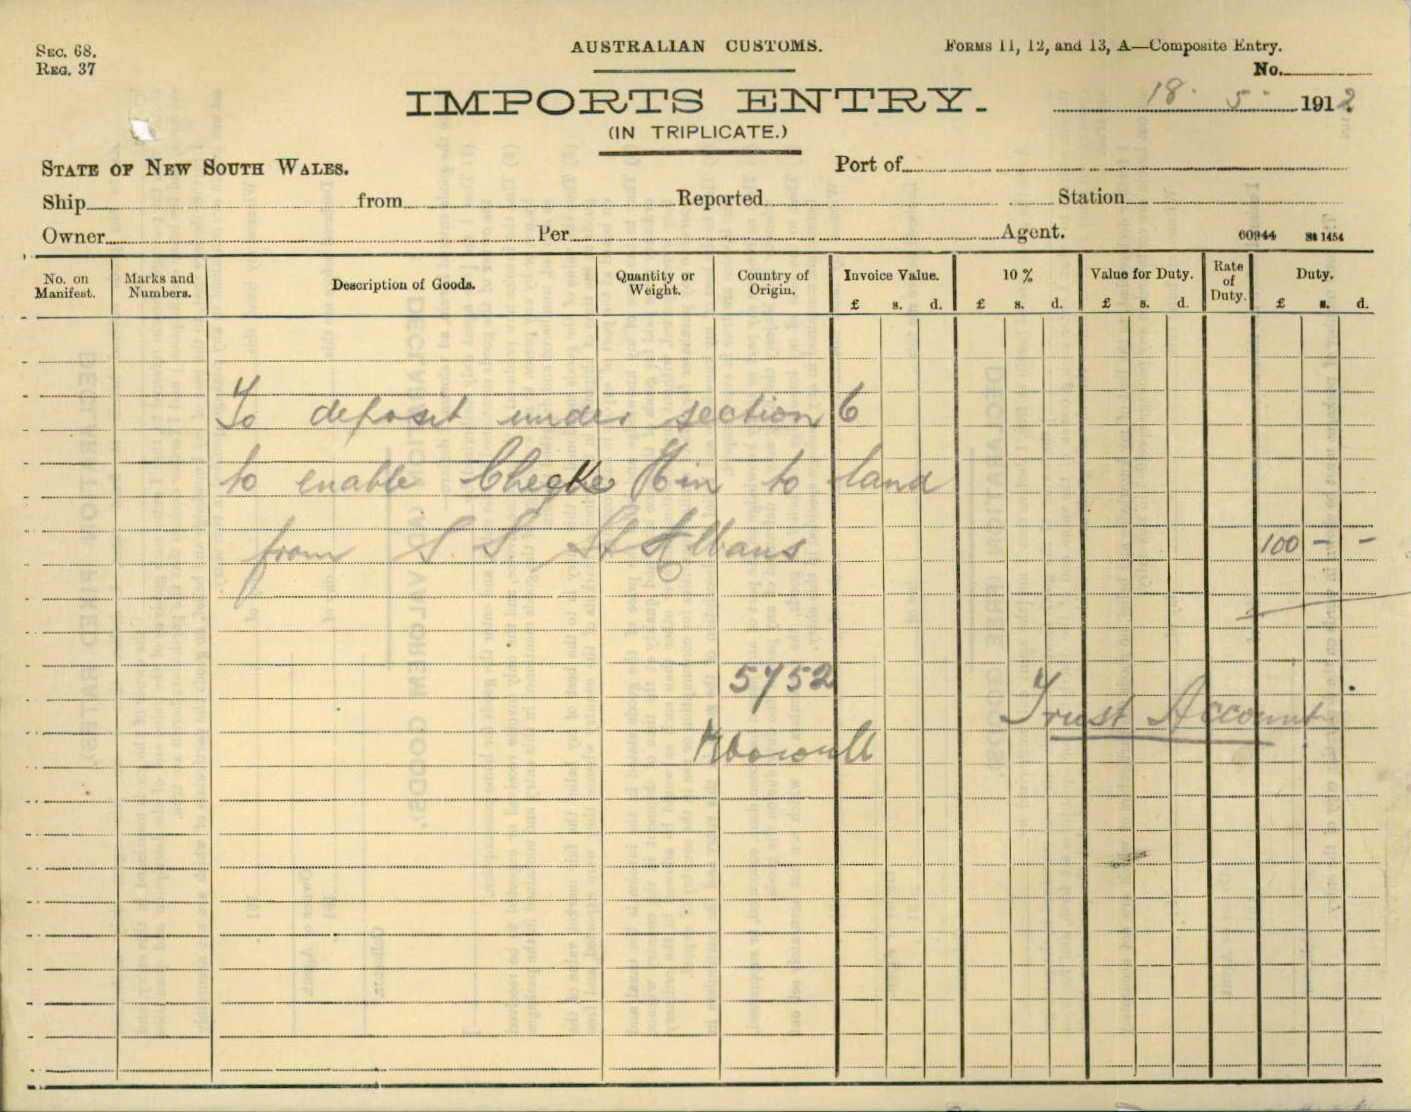 SEC. 68.
REG. 37
AUSTRALIAN CUSTOMS.
FORMS 11, 12, and 13, A—Composite Entry.
No.
IMPORTS ENTRY.
18 . 5 . 1912
(IN TRIPLICATE.)
STATE OF NEW SOUTH WALES.
Port of
Ship from Reported Station
Owner Per Agent.
60944 St 1454
No. on Manifest. Marks and Numbers. Description of Goods. Quantity or Weight. Country of Origin. Invoice Value. 10 % Value for Duty. Rate of Duty. Duty.
£ s. d. £ s. d. £ s. d. £ s. d.
To deposit under section 6
to enable Kin to land
from S. S St Albans 100 - -
5752
Trust Account